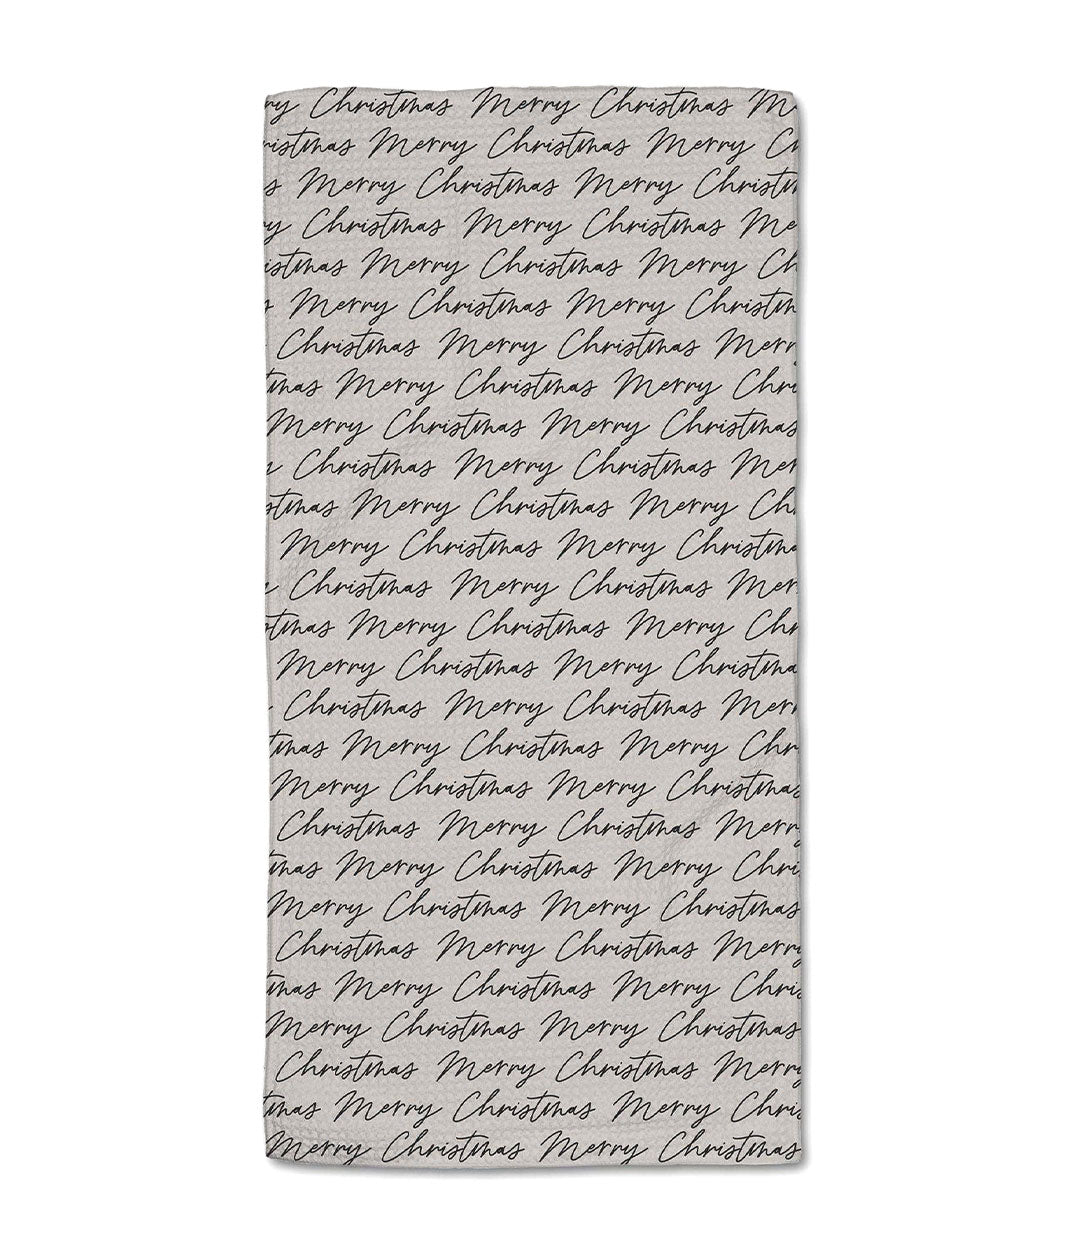 ry Christmas Merry Christmas M
ristmas Merry Christmas Merry Ch
s Merry Christmas Merry Christm
ry Christmas Merry Christmas Me
istmas Merry Christmas Merry Ch
s Merry Christmas Merry Christm
Christmas Merry Christmas Merry
tmas Merry Christmas Merry Chri
Merry Christmas Merry Christmas
y Christmas Merry Christmas Mer
stmas Merry Christmas Merry Ch
Merry Christmas Merry Christma
y Christmas Merry Christmas Mer
stmas Merry Christmas Merry Chr
Merry Christmas Merry Christma
Christmas Merry Christmas Merr
tmas Merry Christmas Merry Chr
Merry Christmas Merry Christmas
Christmas Merry Christmas Merry
tmas Merry Christmas Merry Chri
Merry Christmas Merry Christmas
Christmas Merry Christmas Merry
tmas Merry Christmas Merry Chris
Merry Christmas Merry Christmas
Christmas Merry Christmas Merry
tmas Merry Christmas Merry Chris
Merry Christmas Merry Christmas